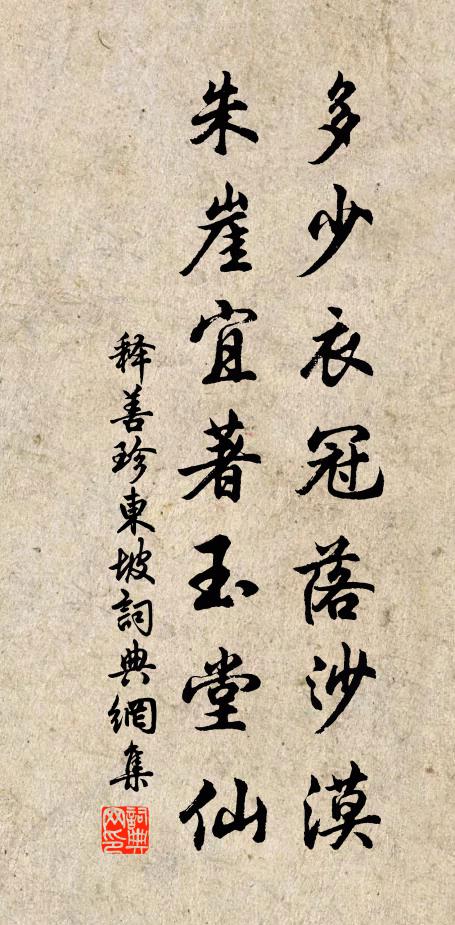 多少衣冠落沙漠
朱崖宜著玉堂仙
释善珍東坡詞典網集
詞典网印